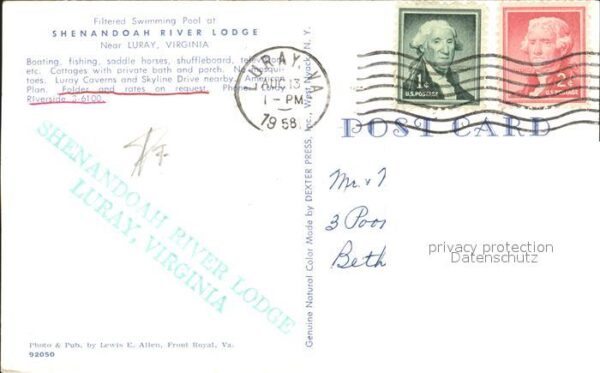 Filtered Swimming Pool at
SHENANDOAH RIVER LODGE
Near LURAY, VIRGINIA
Boating, fishing, saddle horses, shuffleboard, television,
etc. Cottages with private bath and porch. No mosqui-
toes. Luray Caverns and Skyline Drive nearby. American
Plan. Folder and rates on request. Phone: Luray
RIverside 3-6100.
LURAY, VA.
13
1-PM
1958
1¢
U.S. POSTAGE
2¢
U.S. POSTAGE
POST CARD
Mr. &
3 Poo
Beth
privacy protection
Datenschutz
SHENANDOAH RIVER LODGE
LURAY, VIRGINIA
Genuine Natural Color Made by DEXTER PRESS, Inc., West Nyack, N. Y.
Photo & Pub. by Lewis E. Allen, Front Royal, Va.
92050